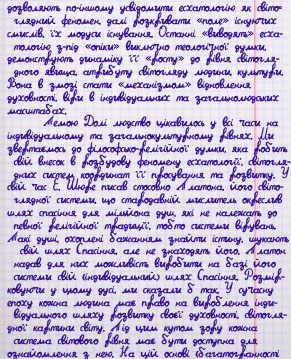 дозволяють по-іншому усвідомити есхатологію як світо-
глядний феномен, далі розкривати «поле» існуючих
смислів, їх модуси існування. Останні «виводять» есха-
тологію з-під «опіки» виключно теологічної думки,
демонструють динаміку її «росту» до рівня світогля-
дного явища, атрибуту світогляду людини, культури.
Вона в змозі стати «механізмом» відновлення
духовності, віри в індивідуальних та загальнолюдських
масштабах.
Темою Долі людство цікавилось у всі часи на
індивідуальному та загальнокультурному рівнях. Ми
звертаємось до філософсько-релігійної думки, яка робить
свій внесок в розбудову феномену есхатології, світогля-
дних систем, координат її просування та розвитку. У
свій час Е. Шюре писав стосовно Платона, його світо-
глядної системи, що стародавній мислитель окреслив
шлях спасіння для мільйона душ, які не належать до
певної релігійної традиції, тобто системи вірувань.
Такі душі, охоплені бажанням знайти істину, шукають
свій шлях Спасіння, але не знаходять його. Платон
надав для них можливість виробити на базі його
системи свій (індивідуальний) шлях Спасіння. Розмір-
ковуючи у цьому дусі, ми сказали б так. У сучасну
епоху кожна людина має право на вироблення інди-
відуального шляху розвитку своєї духовності, світогля-
дної картини світу. Під цим кутом зору кожна
система світового рівня має бути доступна для
ознайомлення з нею. На цій основі багатогранності